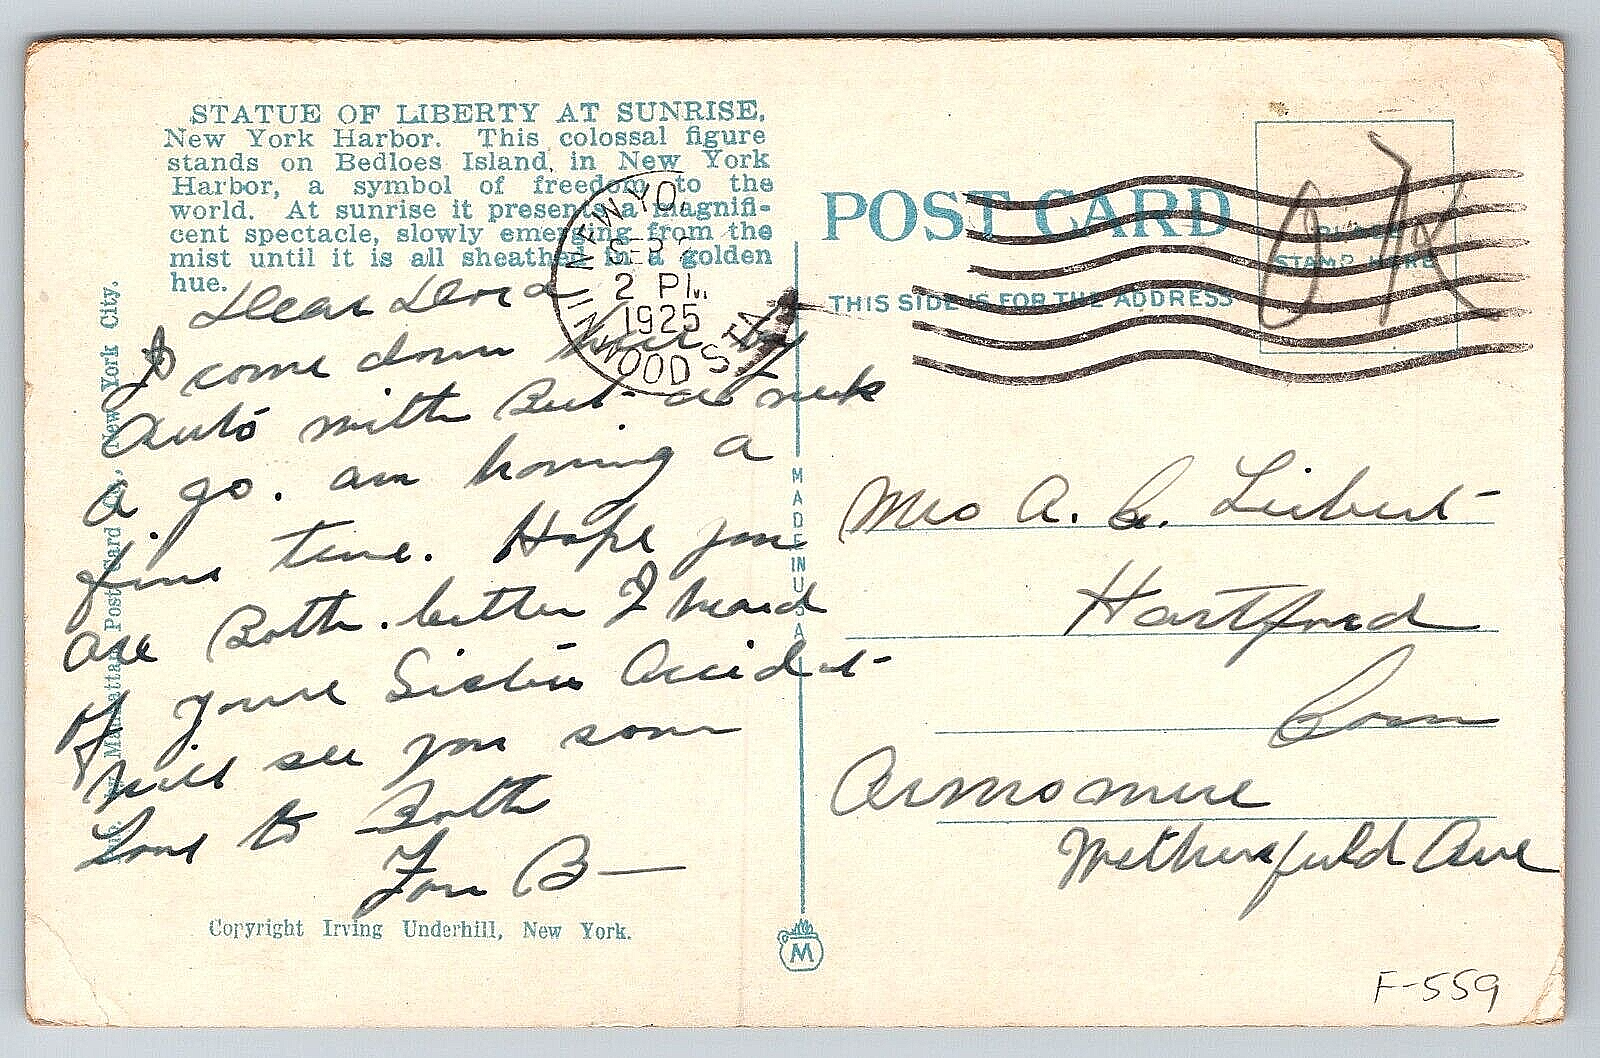 STATUE OF LIBERTY AT SUNRISE,
New York Harbor. This colossal figure
stands on Bedloes Island, in New York
Harbor, a symbol of freedom to the
world. At sunrise it presents a magnifi-
cent spectacle, slowly emerging from the
mist until it is all sheathed in a golden
hue.
Dear Dora
I come down here by
Auto with Bert a week
a go. am having a
fine time. Hope you
are Both. better I heard
of youre Sisters Accident
will see you soon
Love to Both
B—
Copyright Irving Underhill, New York.
Manhattan Post Card New York City.
NEW YO
2 PM
1925
INWOOD STA
POST CARD
THIS SIDE IS FOR THE ADDRESS
PLACE
STAMP HERE
OK
MADE IN U.S.A.
M
Mrs A. C. Leibert
Hartford
Conn
Wethersfield Ave
F-559